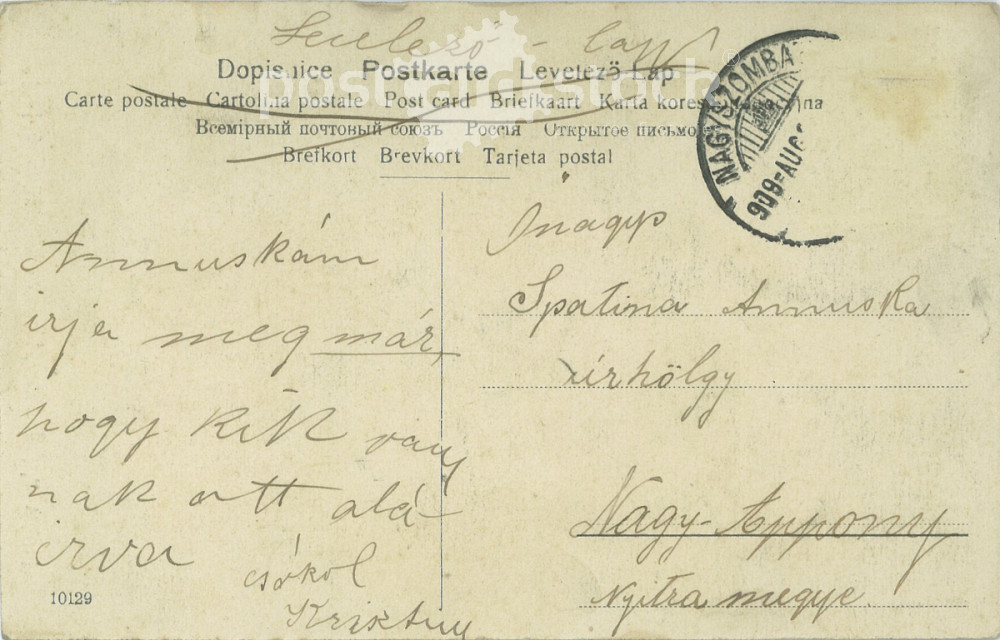 Levelező - lap
Dopisnice Postkarte Levelező Lap
Carte postale Cartolina postale Post card Briefkaart Karta korespondencyjna
Всемірный почтовый союзъ Россія Открытое письмо
Brefkort Brevkort Tarjeta postal
NAGYSZOMBA
909 AUG
Onagys
Spatina Annuska
úrhölgy
Nagy-Appony
Nyitra megye.
Annuskám
irja meg már,
hogy kik van
nak ott alá
irva
csókol
Krisztin
10129